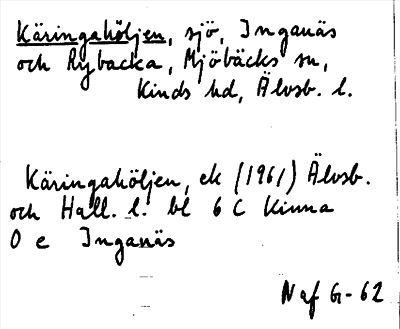 Käringahöljen, sjö, Inganäs
och Rybacka, Mjöbäcks sn,
Kinds hd, Älvsb. l.
Käringahöljen, ek (1961) Älvsb.
och Hall. l. bl 6 C Kinna
0 e Inganäs
Naf G-62